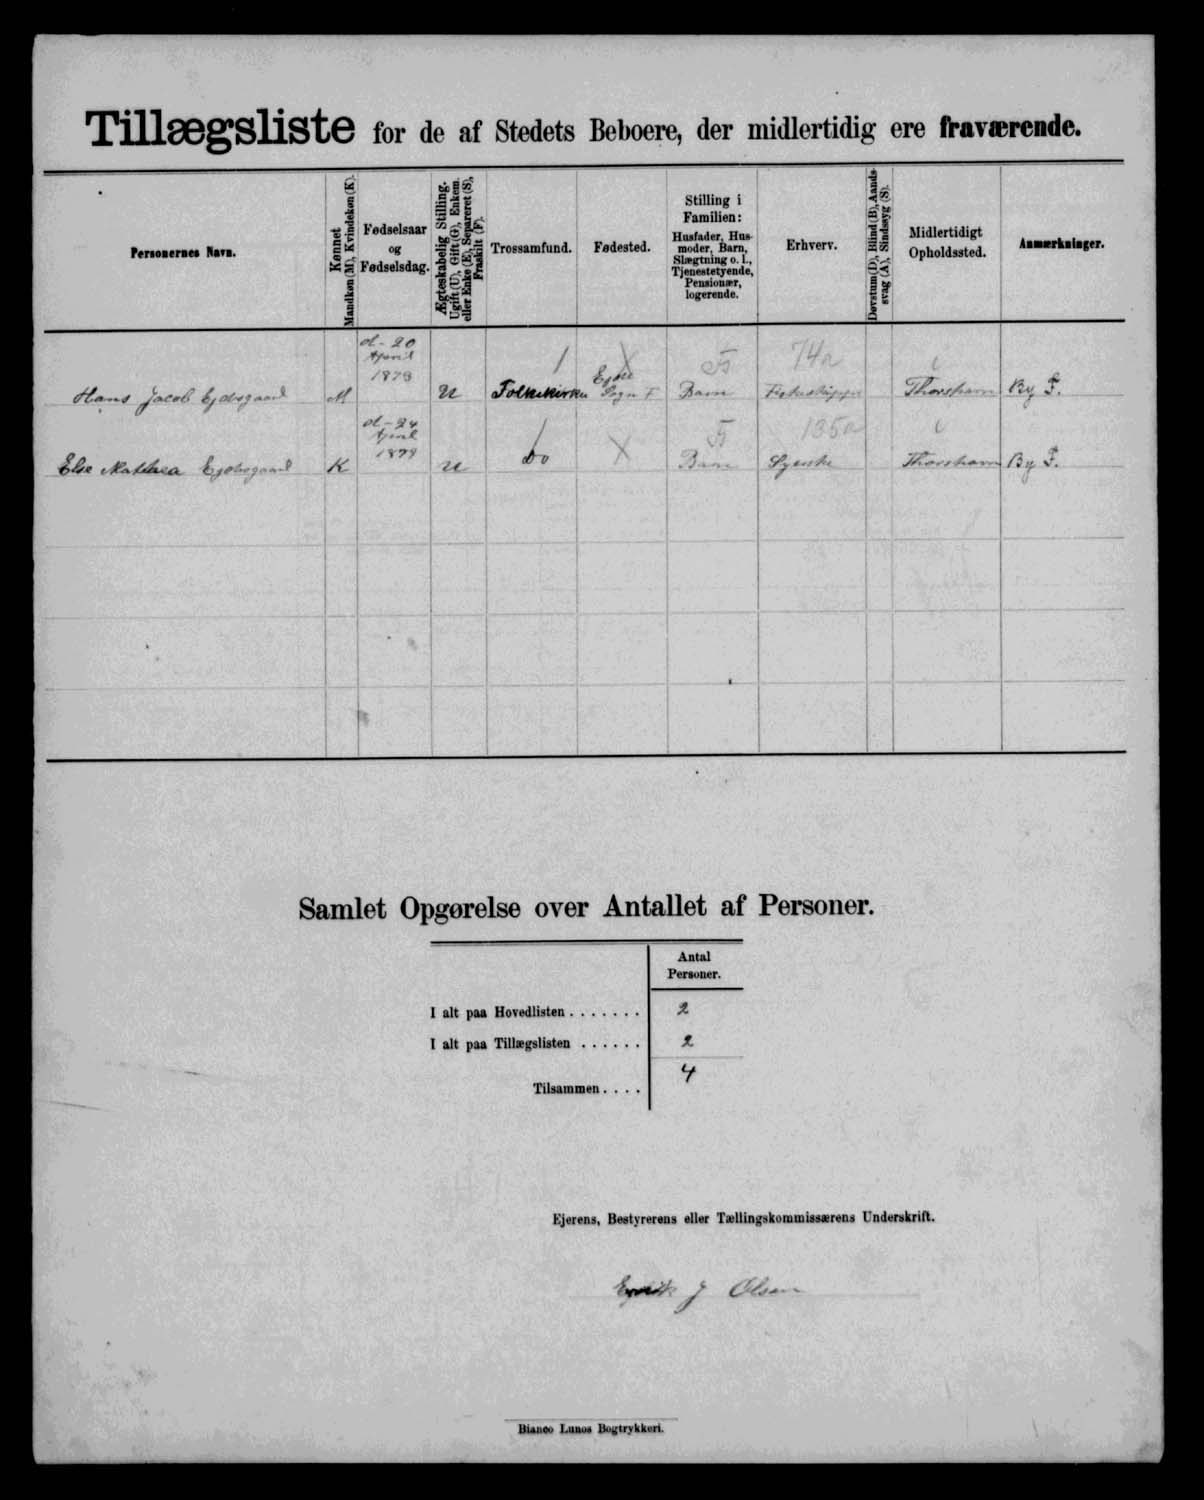 Tillægsliste for de af Stedets Beboere, der midlertidig ere fraværende.
Personernes Navn.
Kønnet
Mandkøn (M), Kvindekøn (K).
Fødselsaar
og
Fødselsdag.
Ægteskabelig Stilling.
Ugift (U), Gift (G), Enkem.
eller Enke (E), Separeret (S),
Fraskilt (F).
Trossamfund.
Fødested.
Stilling i
Familien:
Husfader, Hus-
moder, Barn,
Slægtning o. l.,
Tjenestetyende,
Pensionær,
logerende.
Erhverv.
Døvstum (D), Blind (B), Aands-
svag (A), Sindssyg (S).
Midlertidigt
Opholdssted.
Anmærkninger.
d- 20
April
1873
Hans Jacob M U Folkekirken Sogn F Barn Thorshavn By F.
74a
d- 24
April
1879
Else Mathea K U Do Barn Syerske Thorshavn By F.
135a
Samlet Opgørelse over Antallet af Personer.
Antal
Personer.
I alt paa Hovedlisten ....... 2
I alt paa Tillægslisten ...... 2
Tilsammen .... 4
Ejerens, Bestyrerens eller Tællingskommissærens Underskrift.
J Olsen
Bianco Lunos Bogtrykkeri.